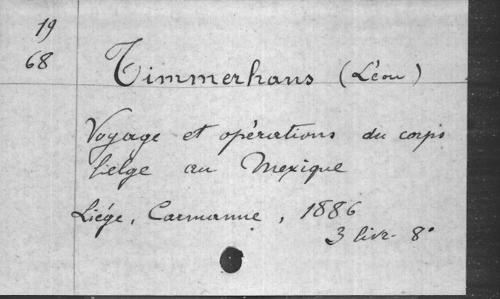 19
68
Timmerhans (Léon)
Voyage et opérations du corps
belge au Mexique
Liége, Carmanne, 1886
3 livr. 8°